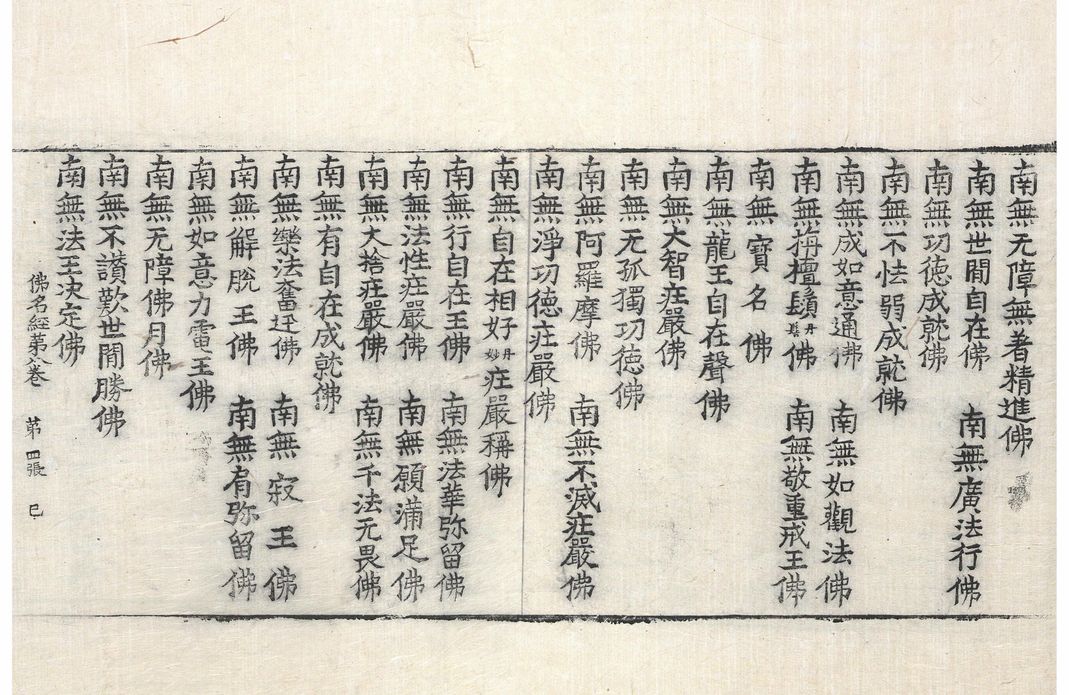 南無无障無著精進佛
南無世間自在佛 南無廣法行佛
南無功徳成就佛
南無不怯弱成就佛
南無成如意通佛 南無如觀法佛
南無栴檀鬚丹髻佛 南無敬重戒王佛
南無寶名佛
南無龍王自在聲佛
南無大智庄嚴佛
南無无孤獨功徳佛
南無阿羅摩佛 南無不滅庄嚴佛
南無淨功德庄嚴佛
南無自在相好丹妙庄嚴稱佛
南無行自在王佛 南無法華弥留佛
南無法性庄嚴佛 南無願滿足佛
南無大捨庄嚴佛 南無千法无畏佛
南無有自在成就佛
南無樂法奮迅佛 南無寂王佛
南無解脫王佛 南無有弥留佛
南無如意力雷王佛
南無无障佛月佛
南無不讃歎世間勝佛
南無法王决定佛
佛名經苐八卷 苐四張 巳